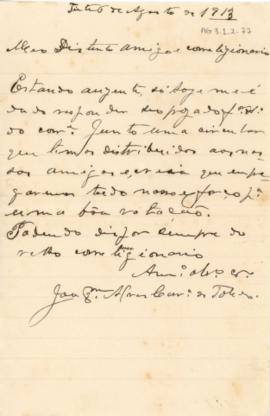 6 de Agosto de 1913
AG 3.1.2.77
Meu Distinto amigo e correligionario
Estando auzente, só hoje me é
dado responder seo prezado
do corr.e Junto uma circular
que temos distribuidos aos nos-
sos amigos, e creia que empre-
garemos todo nosso esforço p.a
uma bôa votação.
Podendo dispor sempre do
velho correligionario
Am.o
de Toledo